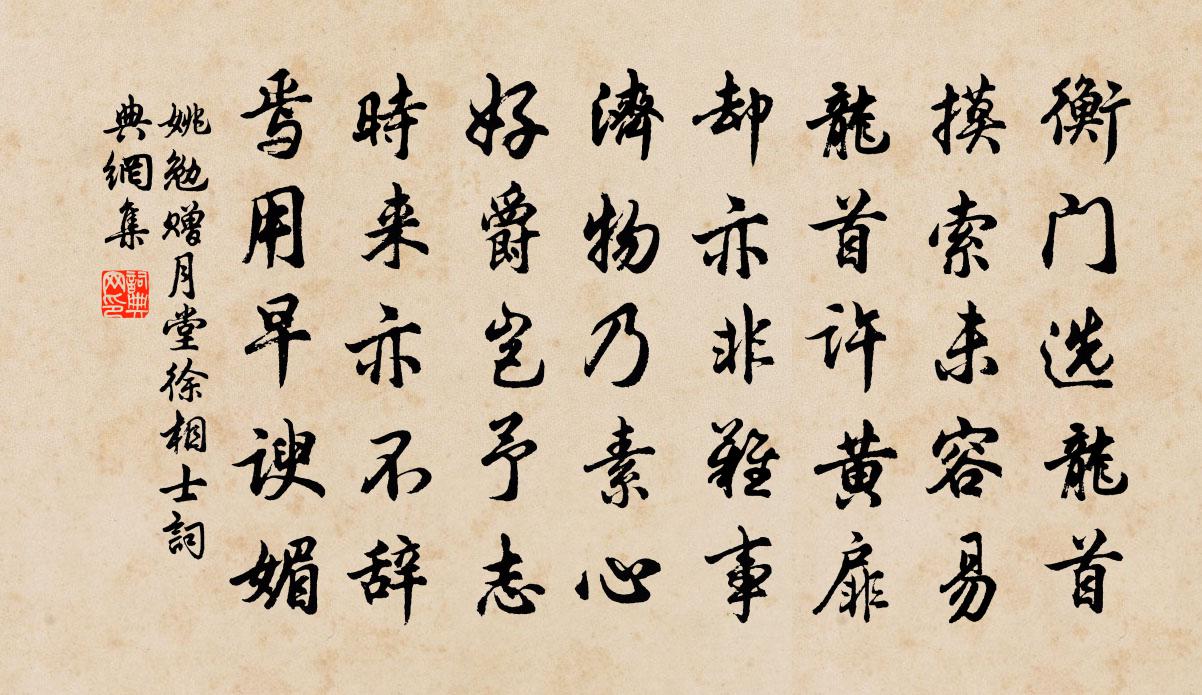 衡门选龍首
摸索未容易
龍首许黄扉
却亦非難事
濟物乃素心
好爵岂予志
時来亦不辞
焉用早謏媚
姚勉赠月堂徐相士詞
典網集
詞典
网印